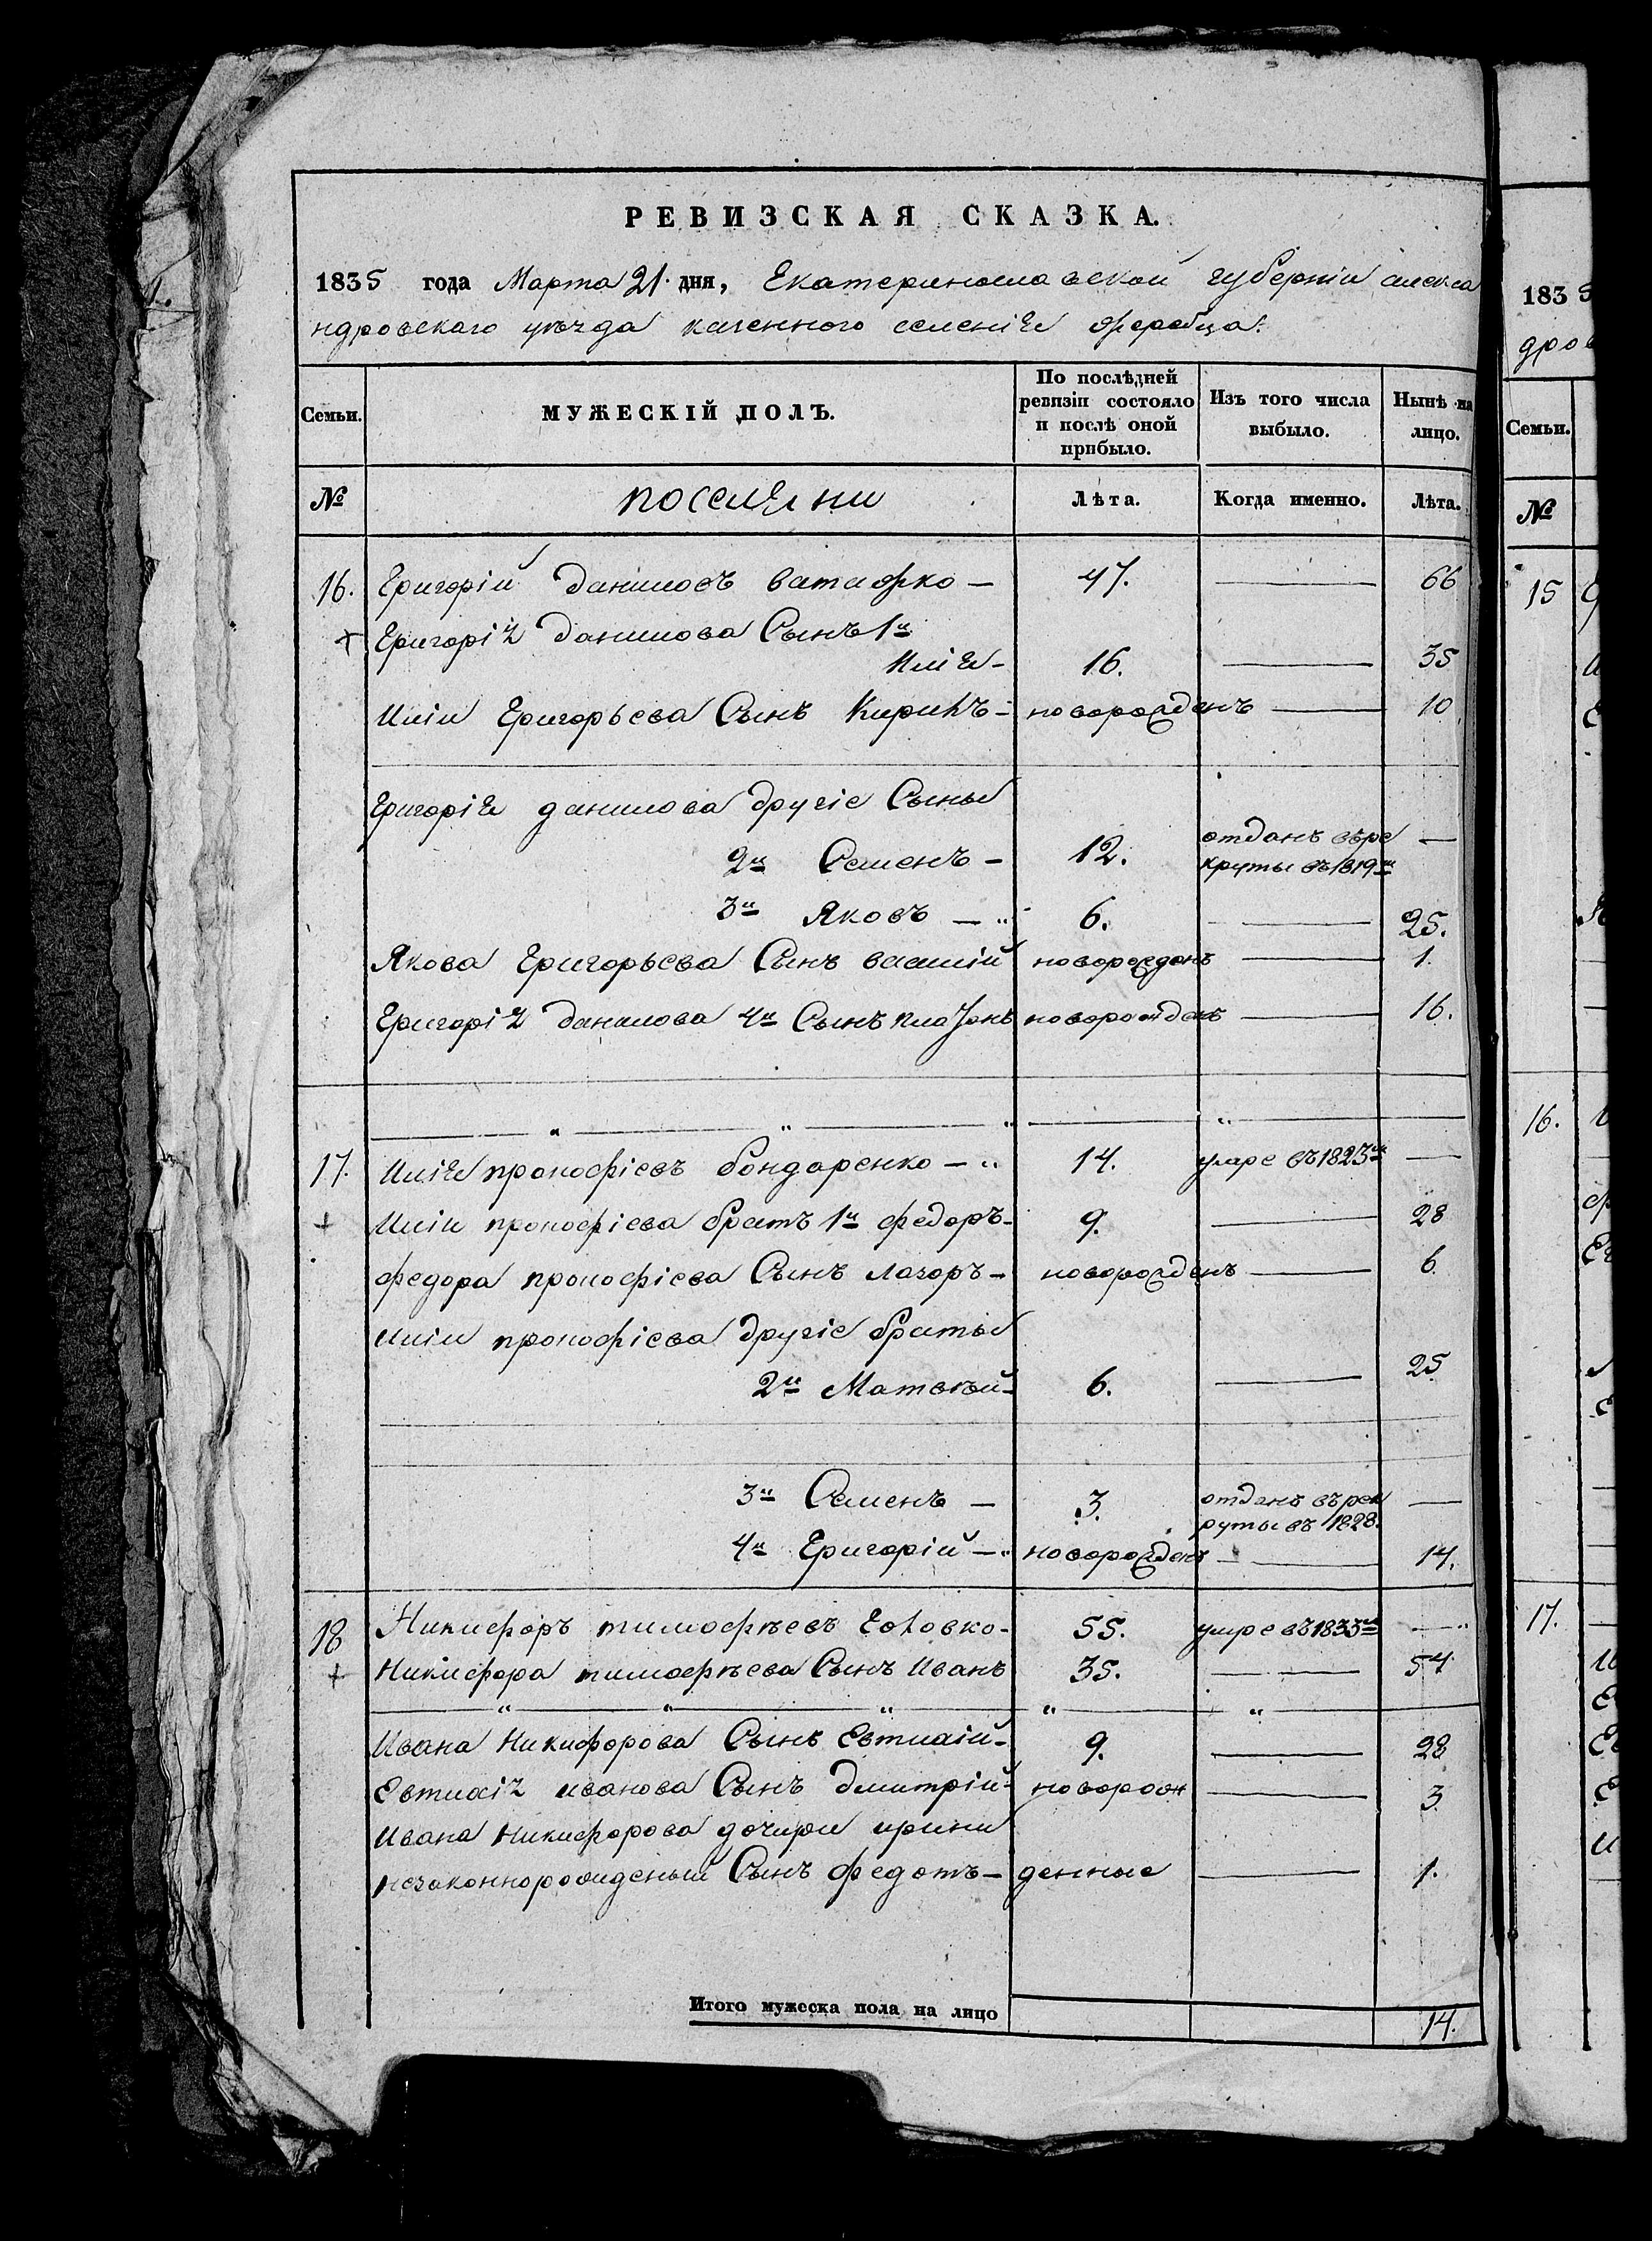 РЕВИЗСКАЯ СКАЗКА.
1835 года Марта 21. дня, Екатеринославской губерніи алекса
ндровскаго уѣзда казенного селенія
Семьи. МУЖЕСКІЙ ПОЛЪ. По послѣдней ревизіи состояло и послѣ оной прибыло. Изъ того числа выбыло. Нынѣ на лицо.
№ поселяни Лѣта. Когда именно. Лѣта.
16. Григорій даниловъ — 47. — 66
+ Григорія данилова Сынъ 1й
Илія — 16. — 35
Иліи Григорьева Сынъ Кирилъ — новорожденъ — 10
Григорія данилова другіе Сыны
2й Семенъ — 12. отданъ върекруты въ 1819м —
3й Яковъ — 6. — 25.
Якова Григорьева Сынъ василій новорожденъ — 1.
Григорія данилова 4й Сынъ платонъ новорожденъ — 16.
17. Илія прокофіевъ бондаренко — 14. умре въ 1823м —
+ Иліи прокофіева братъ 1й федоръ — 9. — 28
федора прокофіева Сынъ лазоръ — новорожденъ — 6
Иліи прокофіева другіе браты
2й Матвѣй — 6. — 25
3й Семенъ — 3. отданъ върекруты въ 1828. —
4й Григорій — новорожденъ — 14.
18 Никифоръ тимофѣевъ — 55. умре въ 1833м —
+ Никифора тимофѣева Сынъ Иванъ 35. — 54
Ивана Никифорова Сынъ Евтихій — 9. — 28
Евтихія иванова Сынъ дмитрій — новорож — 3
Ивана Никифорова дочири ирини
незаконнорожденый Сынъ федотъ — денные — 1.
Итого мужеска пола на лицо 14.
1835
дров
Семьи.
№
15
16.
17.